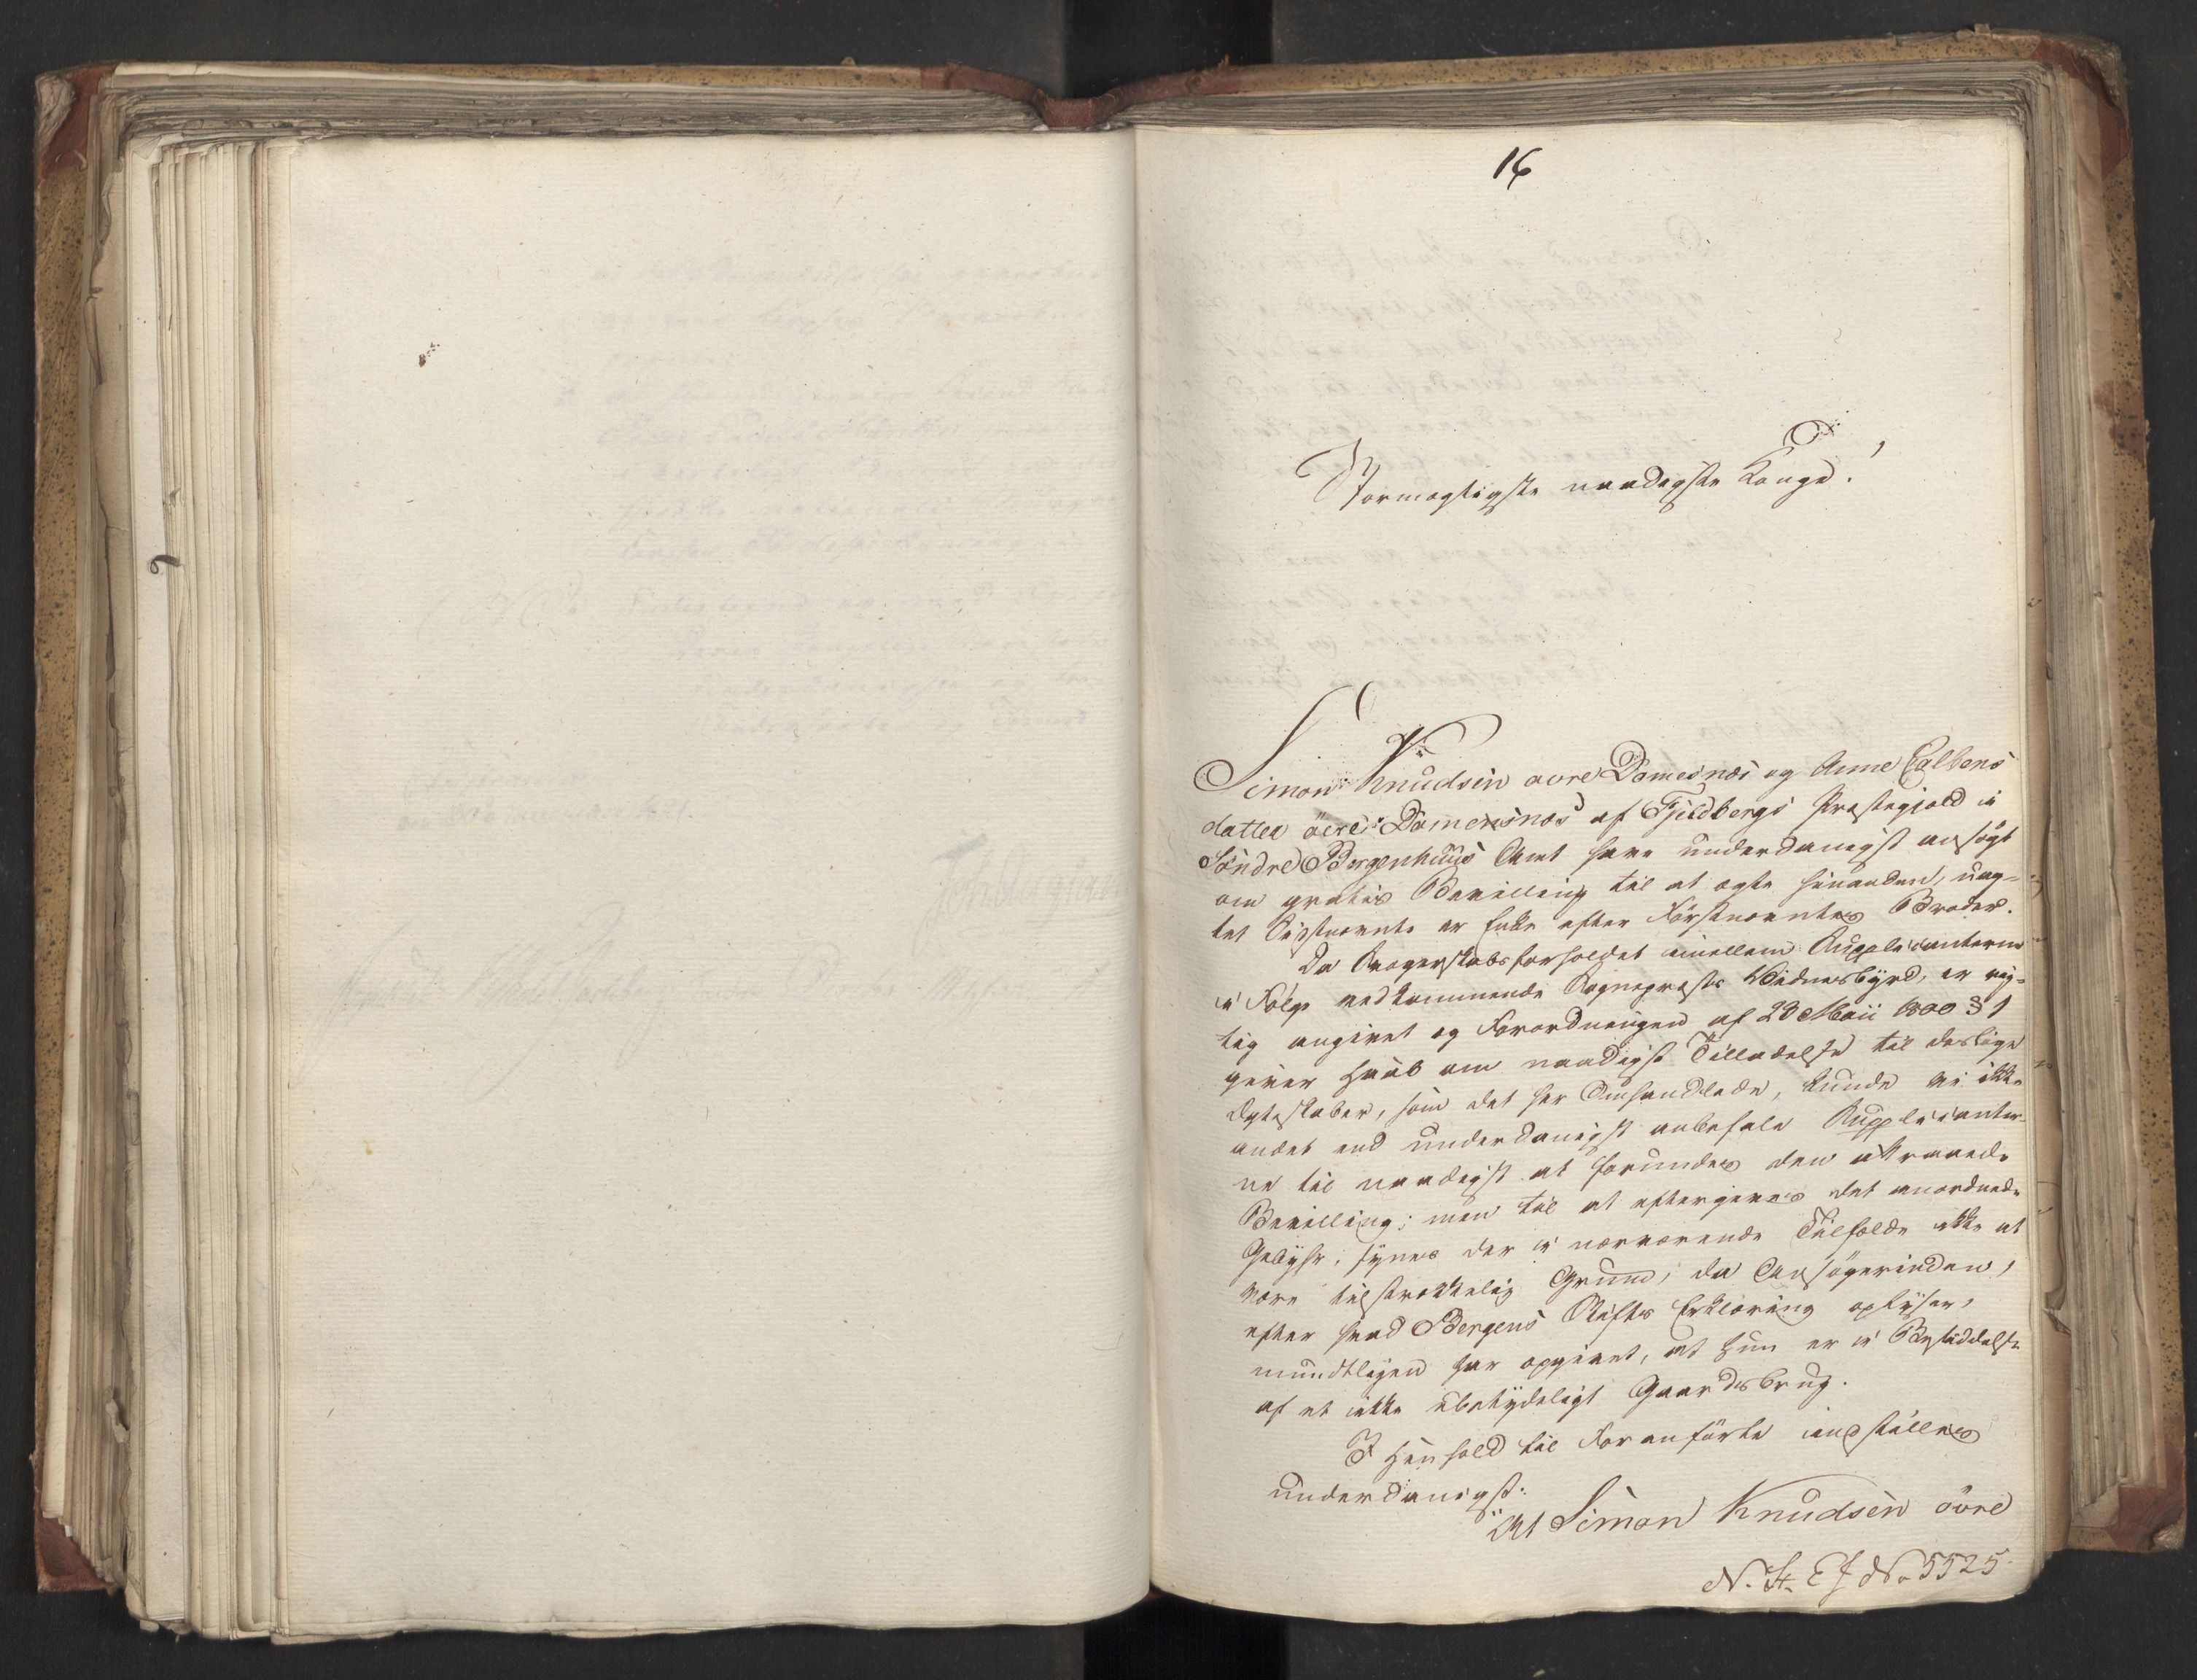 16
Stormægtigste naadigste Konge!
Simon Knudsen övre Damesnæs og Anne Calbens
datter övre Damesnæs af Fjeldbergs Præstegjæld i
Söndre Bergenhuus Amt have underdanigst ansögt
om gratis Bevilling til at ægte hinanden, uag-
tet Sidstnævnte er Enke efter Förstnævntes Broder.
Da Svogerskabsforholdet imellem Supplicanterne
i Fölge vedkommende Sognepræsts Vidnesbyrd, er rig-
tig angivet og Forordningen af 23 Maii 1800 § 1
giver Haab om naadigst Tilladelse til deslige
Ægteskaber, som det her Omhandlede, kunde vi ikke
andet end underdanigst anbefale Supplicanter-
ne til naadigst at forundes den attraaede
Bevilling; men til at eftergives det anordnede
Gebyhr, synes der i nærværende Tilfælde ikke at
være tilstrækkelig Grund, da Ansögerinden,
efter hvad Bergens Stifts Erklæring oplyser,
mundtligen har opgivet, at hun er i Besiddelse
af et ikke ubetydeligt Gaardsbrug.
I Henhold til Foranförte indstilles
underdanigst:
At Simon Knudsen övre
N. St. E J No 5525.